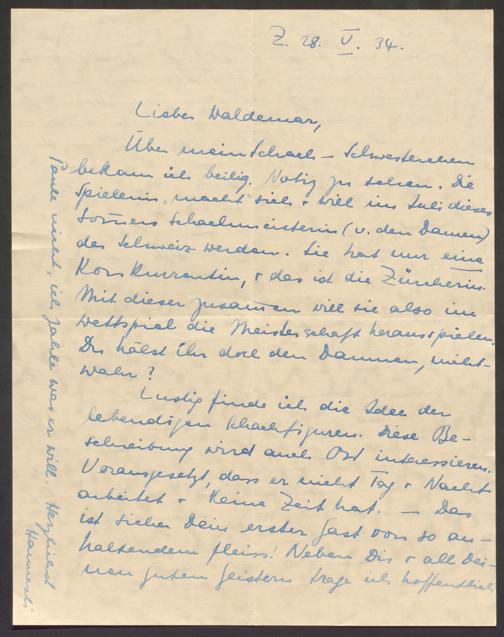 Z. 28. V. 34.
Lieber Waldemar,
Über mein Schach-Schwesterchen
bekam ich beilig. Notiz zu sehen. Die
Spielerin "macht sich" + will im Juli dieses
Sommers Schachmeisterin (v. den Damen)
der Schweiz werden. Sie hat nur eine
Konkurrentin, + das ist die Zürcherin.
Mit dieser zusammen will sie also im
Wettspiel die Meisterschaft herausspielen.
Du hälst ihr doch den Daumen, nicht-
wahr?
Lustig finde ich die Idee der
lebendigen Schachfiguren. Diese Be-
schreibung wird auch Ost interessieren.
Vorausgesetzt, dass er nicht Tag + Nacht
arbeitet + keine Zeit hat. — Das
ist sicher Dein erster Gast von so an-
haltendem Fleiss! Neben Dir + all Dei-
nen guten Geistern trage ich hoffentlich
ich zahle was er will. Herzlichst